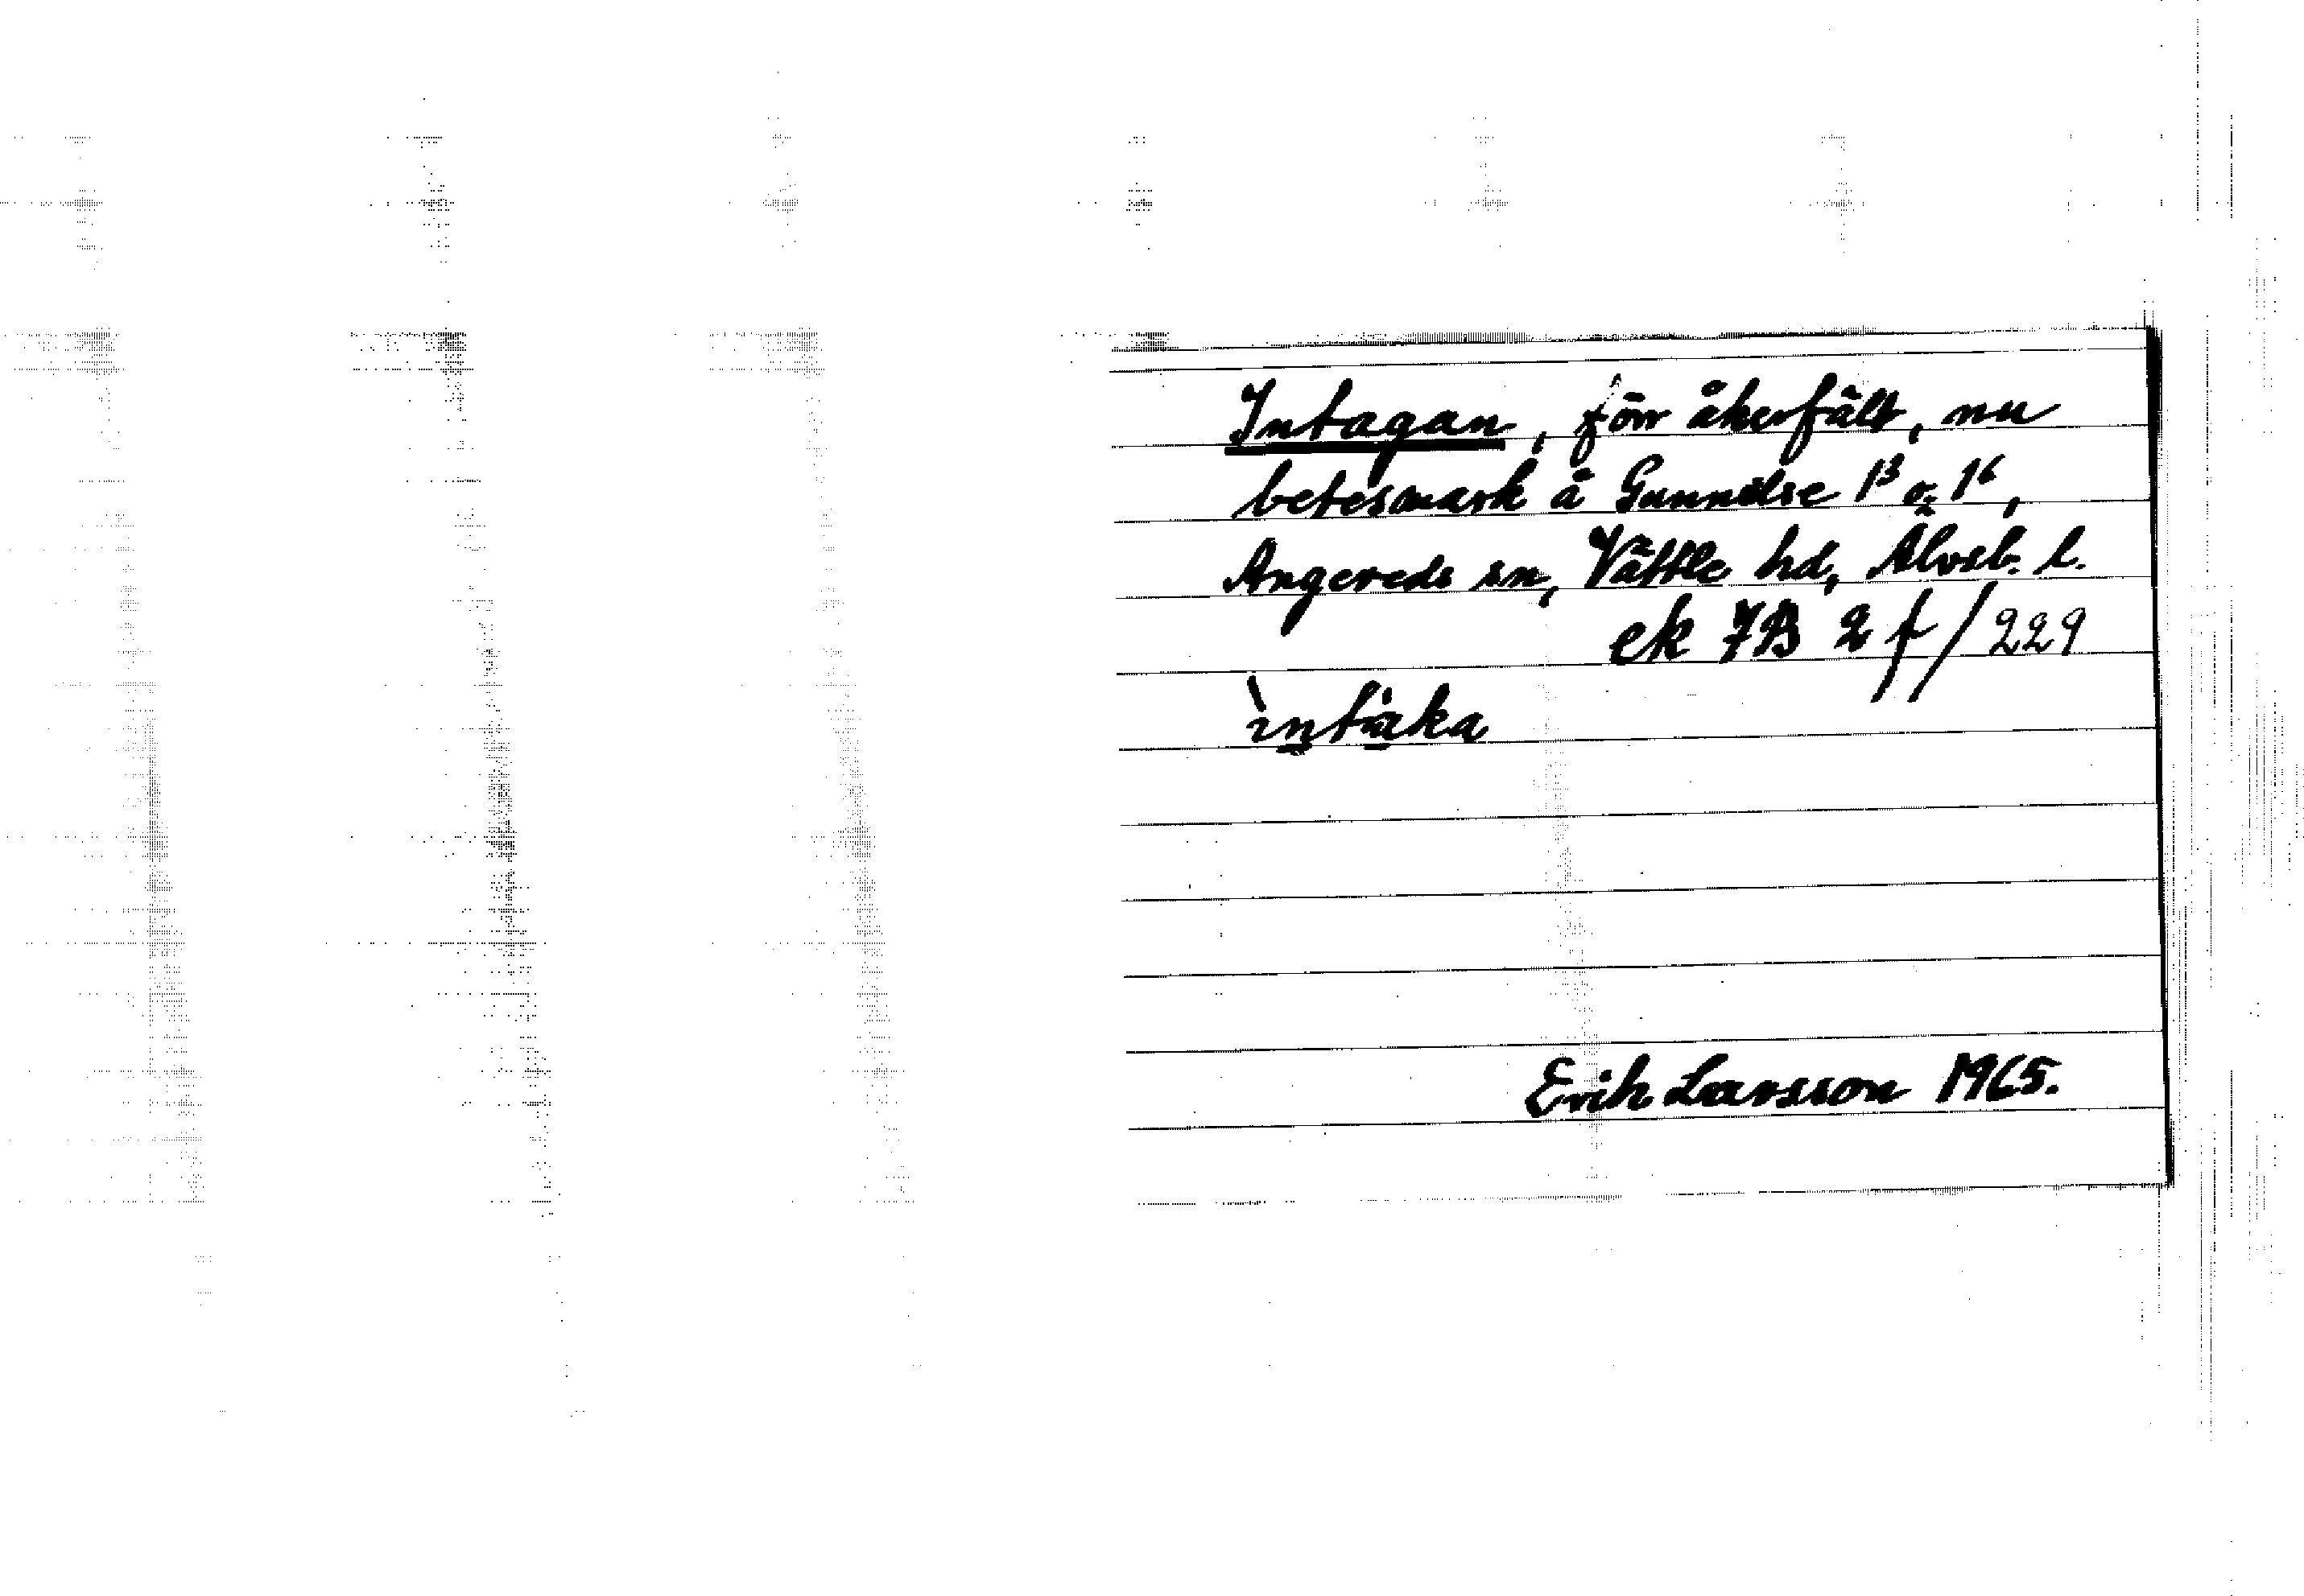 Intagan, förr åkerfält, nu
betesmark å Gunnilse 1³ o. 1⁶,
Angereds sn, Vättle hd, Älvsb. l.
ek 7B 2 f/229
ìntàka
Erik Larsson 1965.